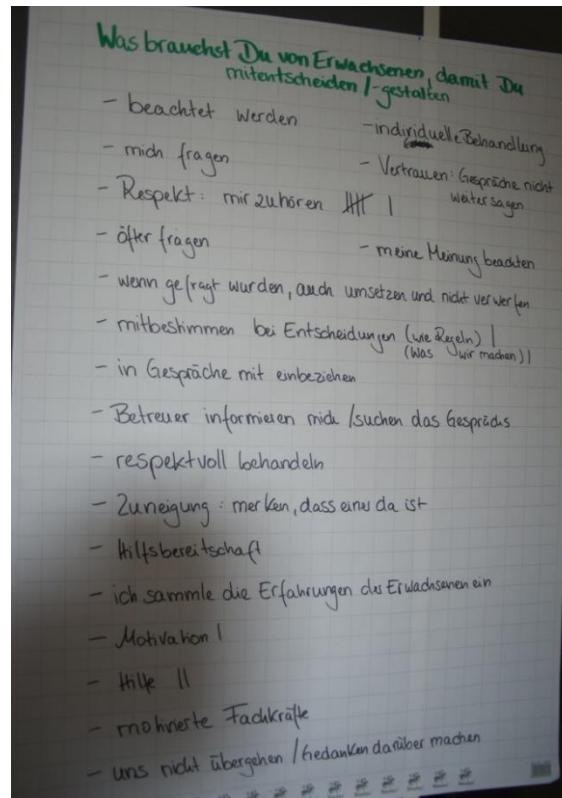 Was brauchst Du von Erwachsenen, damit Du
mitentscheiden /-gestalten
- beachtet werden
- individuelle Behandlung
- mich fragen
- Vertrauen: Gespräche nicht
weiter sagen
- Respekt: mir zuhören |||| |
- öfter fragen
- meine Meinung beachten
- wenn gefragt wurden, auch umsetzen und nicht verwerfen
- mitbestimmen bei Entscheidungen (wie Regeln) |
(Was wir machen) |
- in Gespräche mit einbeziehen
- Betreuer informieren mich /suchen das Gesprächs
- respektvoll behandeln
- Zuneigung: merken, dass einer da ist
- Hilfsbereitschaft
- ich sammle die Erfahrungen des Erwachsenen ein
- Motivation |
- Hilfe ||
- motivierte Fachkräfte
- uns nicht übergehen / Gedanken darüber machen